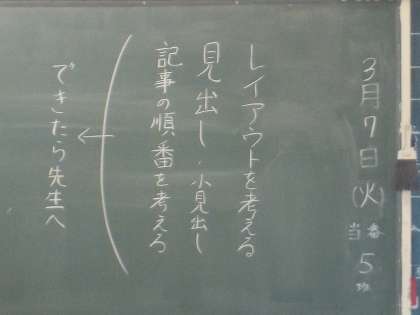 3月7日(火)
当番 5班
レイアウトを考える
見出し・小見出し
記事の順番を考えろ
できたら先生へ